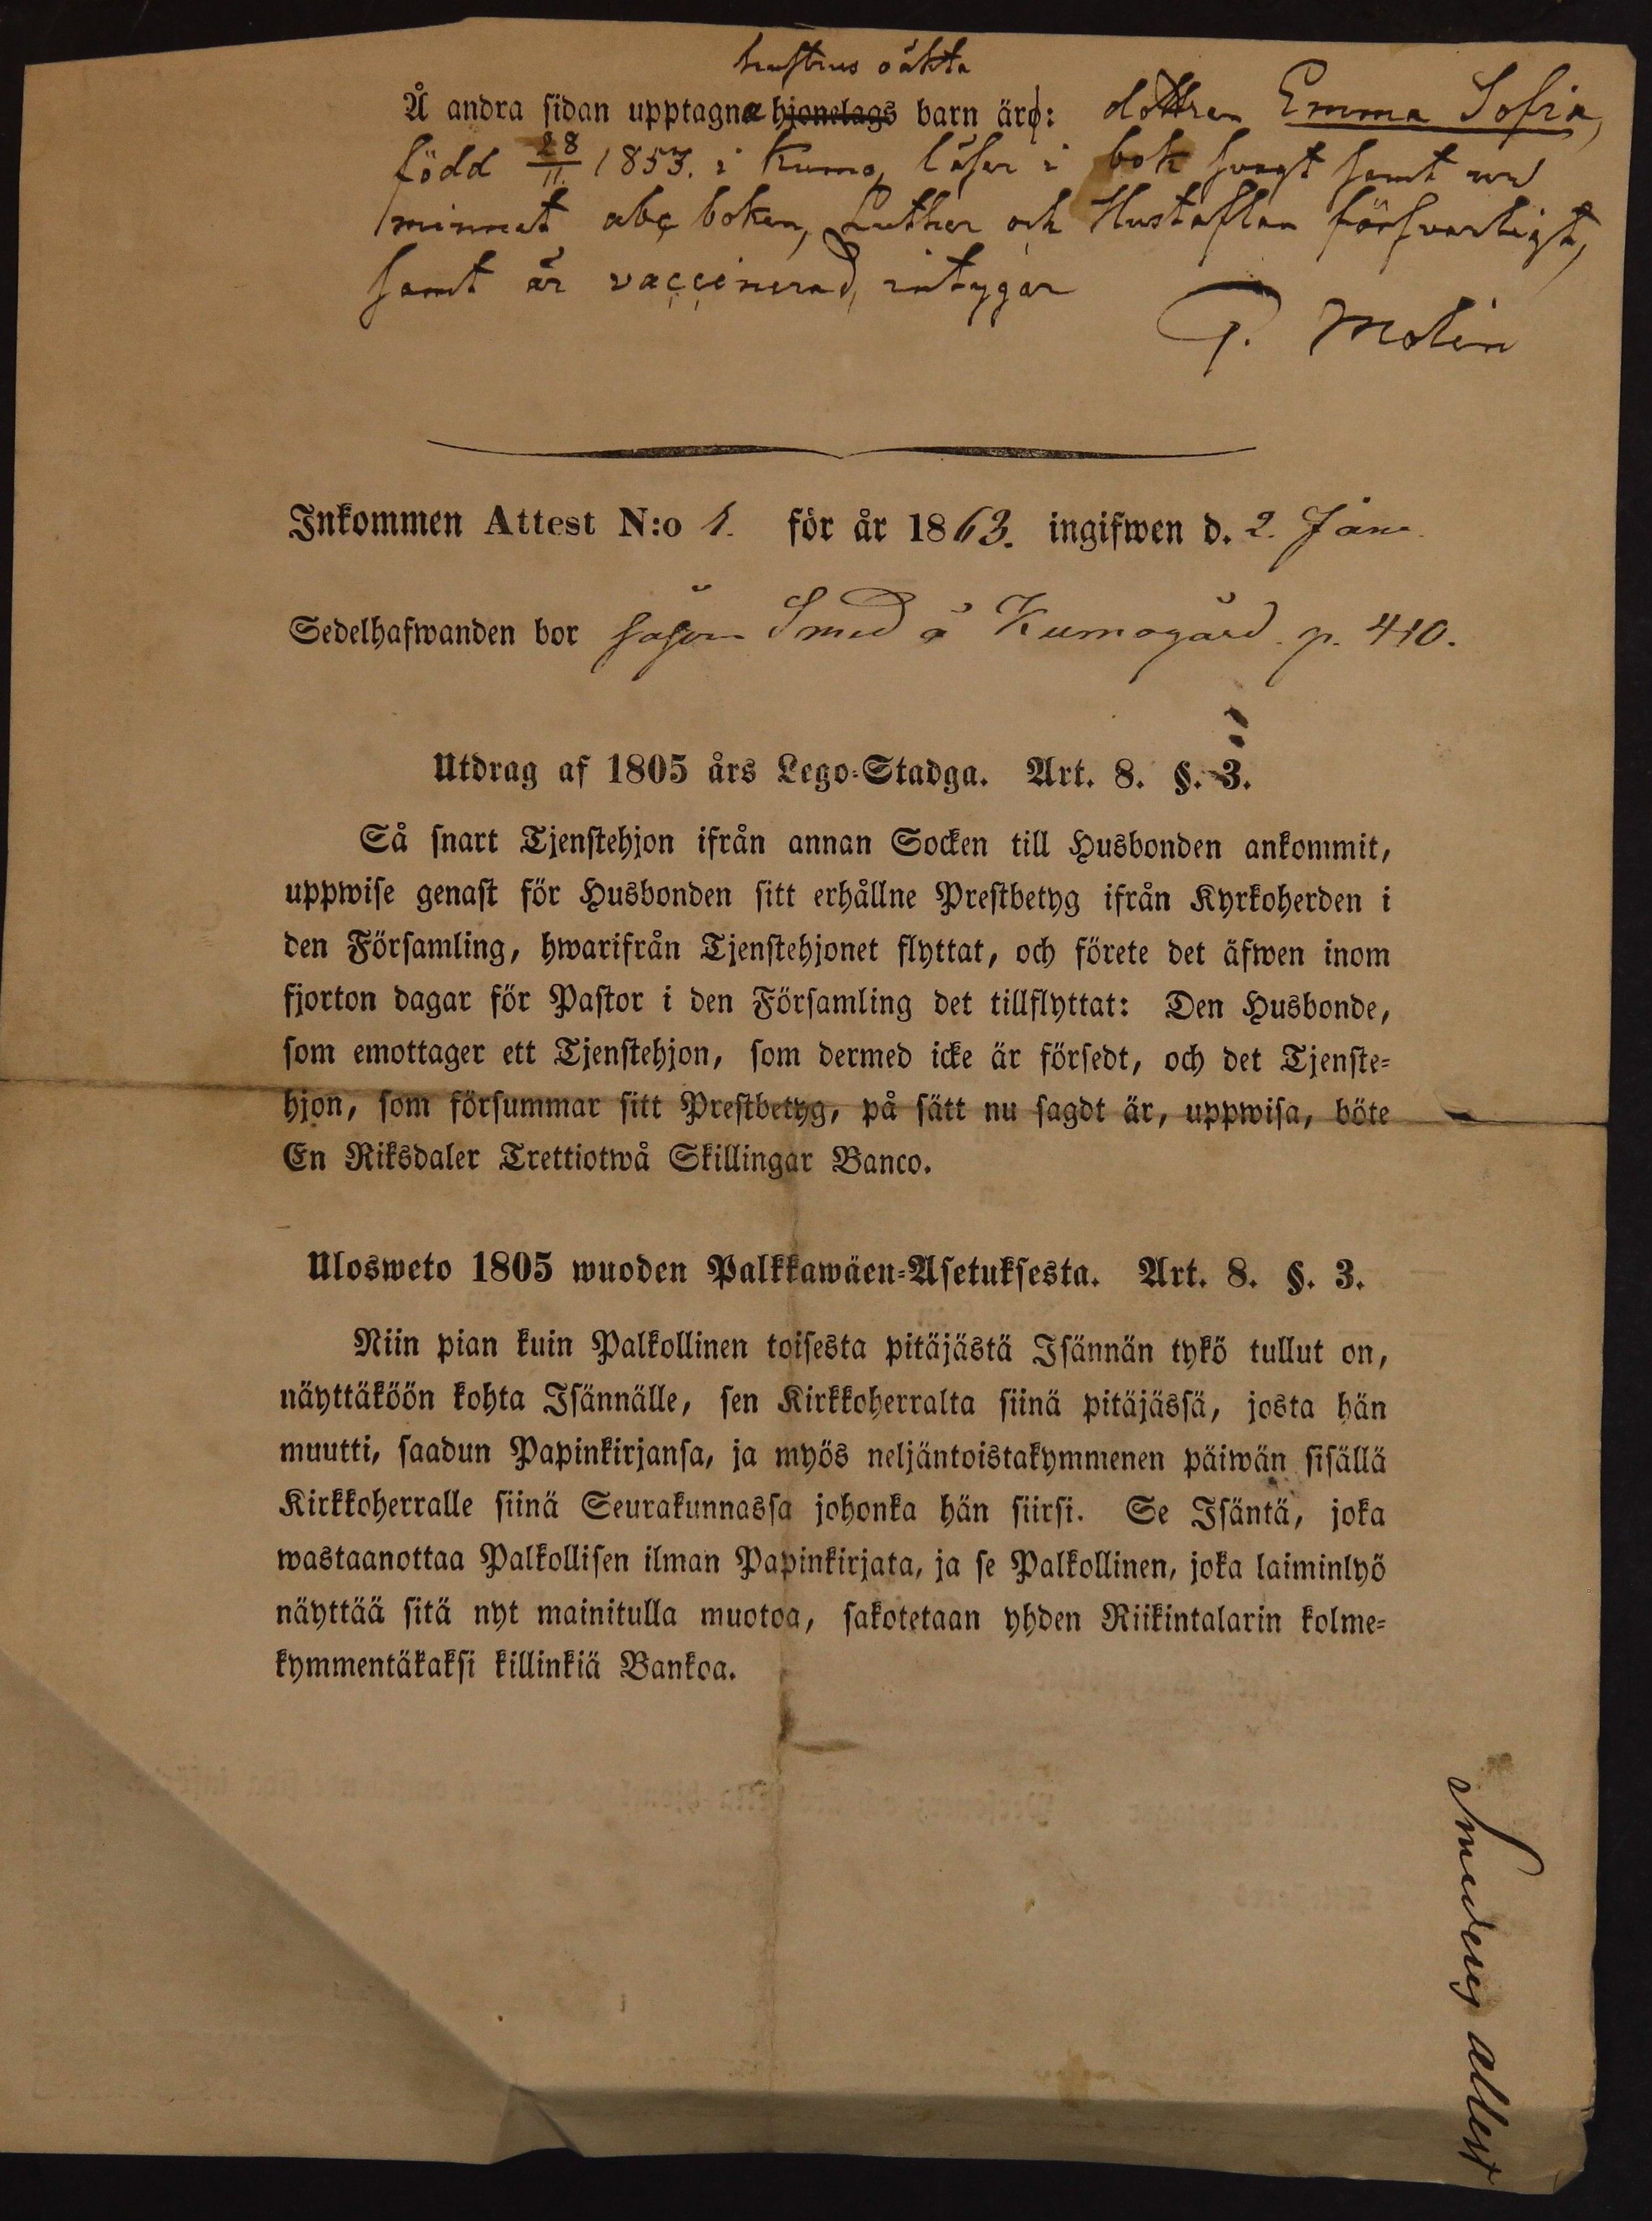 hustrus oäkta
Å andra sidan upptagne hjonelags barn äro: dottren Emma Sofia,
född 28/11 1853. i Kumo, läser i bok svagt samt ur
minnet abc boken, Luther och Hustaflan försvarligt,
samt är vaccinerad, intygar
P. Molin
Inkommen Attest N:o 1. för år 1863. ingifwen d. 2. Jan.
Sedelhafwanden bor såsom Smed å Kumogård. p. 410.
Utdrag af 1805 års Lego-Stadga. Art. 8. §. 3.
Så snart Tjenstehjon ifrån annan Socken till Husbonden ankommit,
uppwise genast för Husbonden sitt erhållne Prestbetyg ifrån Kyrkoherden i
den Församling, hwarifrån Tjenstehjonet flyttat, och förete det äfwen inom
fjorton dagar för Pastor i den Församling det tillflyttat: Den Husbonde,
som emottager ett Tjenstehjon, som dermed icke är försedt, och det Tjenste-
hjon, som försummar sitt Prestbetyg, på sätt nu sagdt är, uppwisa, böte
En Riksdaler Trettiotwå Skillingar Banco.
Ulosweto 1805 wuoden Palkkawäen-Asetuksesta. Art. 8. §. 3.
Niin pian kuin Palkollinen toisesta pitäjästä Isännän tykö tullut on,
näyttäköön kohta Isännälle, sen Kirkkoherralta siinä pitäjässä, josta hän
muutti, saadun Papinkirjansa, ja myös neljäntoistakymmenen päiwän sisällä
Kirkkoherralle siinä Seurakunnassa johonka hän siirsi. Se Isäntä, joka
wastaanottaa Palkollisen ilman Papinkirjata, ja se Palkollinen, joka laiminlyö
näyttää sitä nyt mainitulla muotoa, sakotetaan yhden Riikintalarin kolme-
kymmentäkaksi killinkiä Bankoa.
Smedens attest